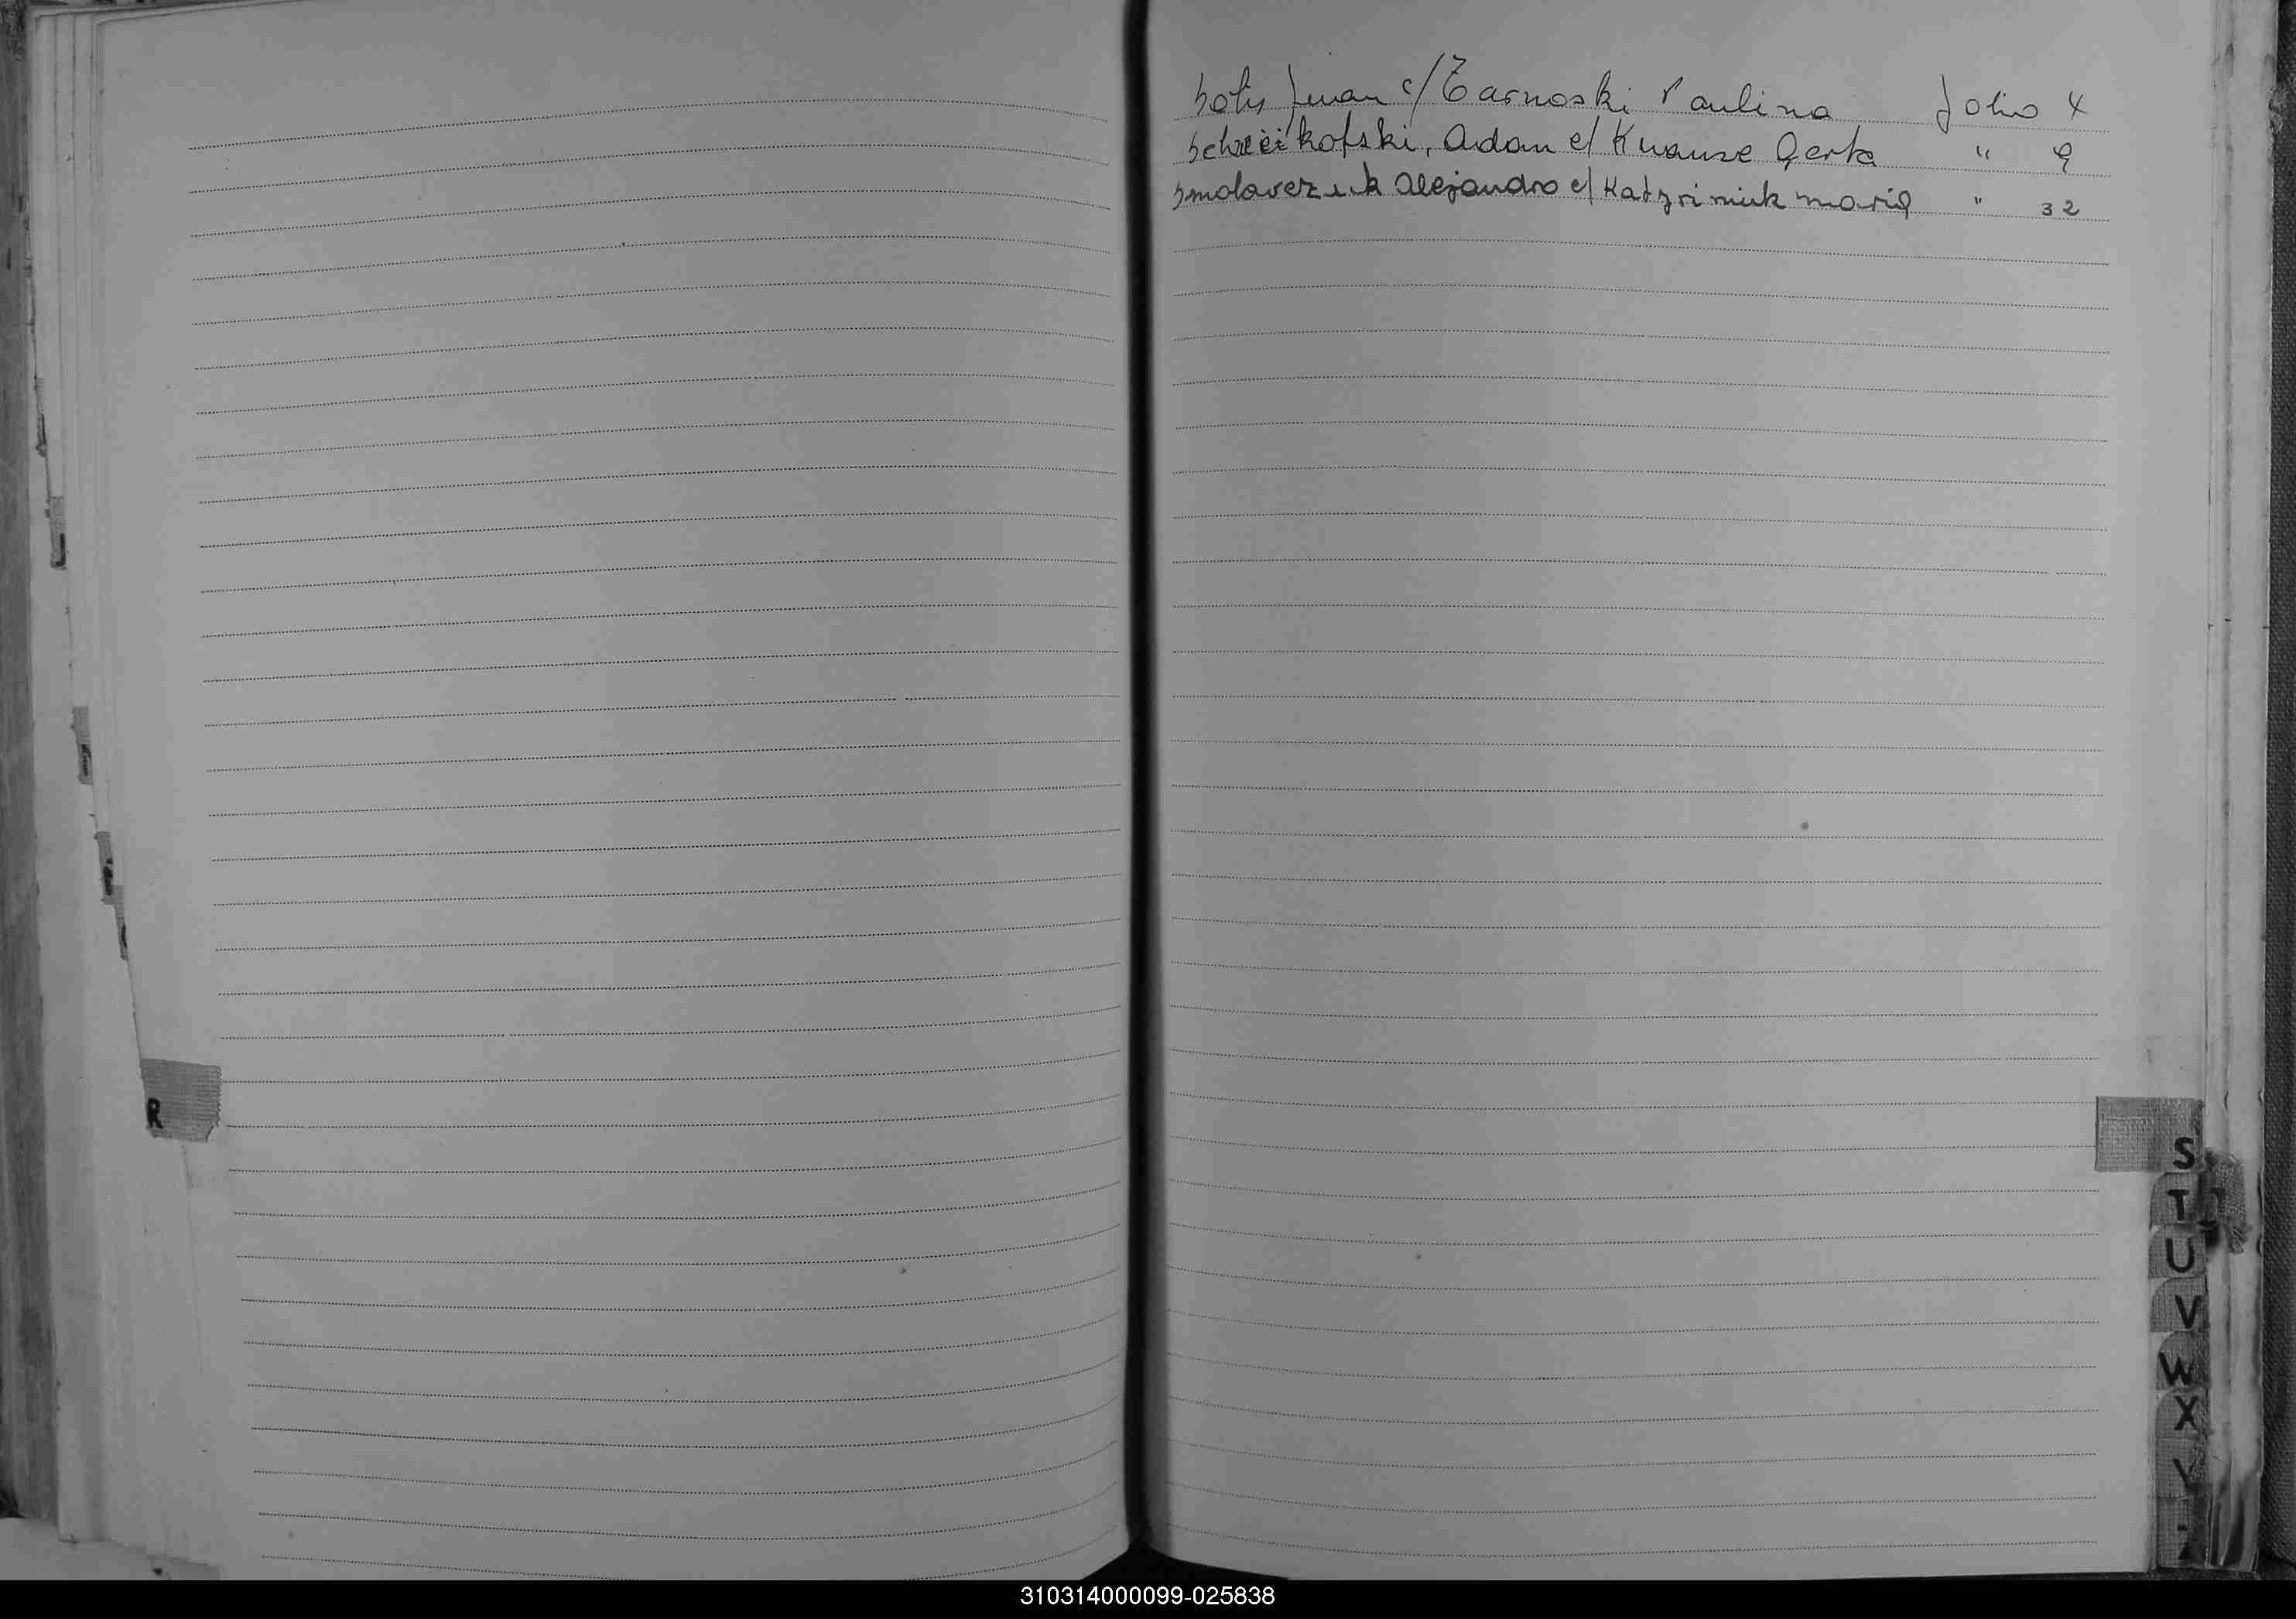 Solis Juan c/ Tarnoski Paulina Folio X
kofski, Adan c/ Krause Gerta " 9
Alejandro c/ Katzrimiuk Maria " 32
R
S
T
U
V
W
X
Y
310314000099-025838